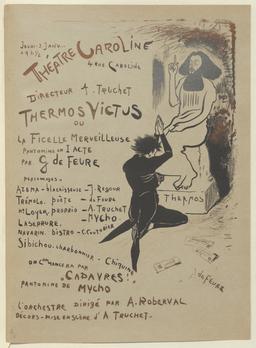 Jeudi 2 Janv...
à 9 h 1/2
THÉATRE CAROLINE
4 RUE CAROLINE
DIRECTEUR A. TRUCHET
THERMOS VICTUS
OU
LA FICELLE MERVEILLEUSE
PANTOMIME EN 1 ACTE
PAR G de FEURE
PERSONNAGES-
TREMOLO, POÈTE - de FEURE
Mr LOYER, PROPRIO - A. TRUCHET
LASERRURE - MYCHO
NAVARIN, BISTRO - C. COUTURIER
SIBICHOU, CHARBONNIER - CHIQUINI
ON COMMENCERA PAR
"CADAVRES!"
PANTOMIME DE MYCHO
L'ORCHESTRE DIRIGÉ PAR A. ROBERVAL
DÉCORS - MISE EN SCÈNE D'A TRUCHET-
THERMOS
de FEURE